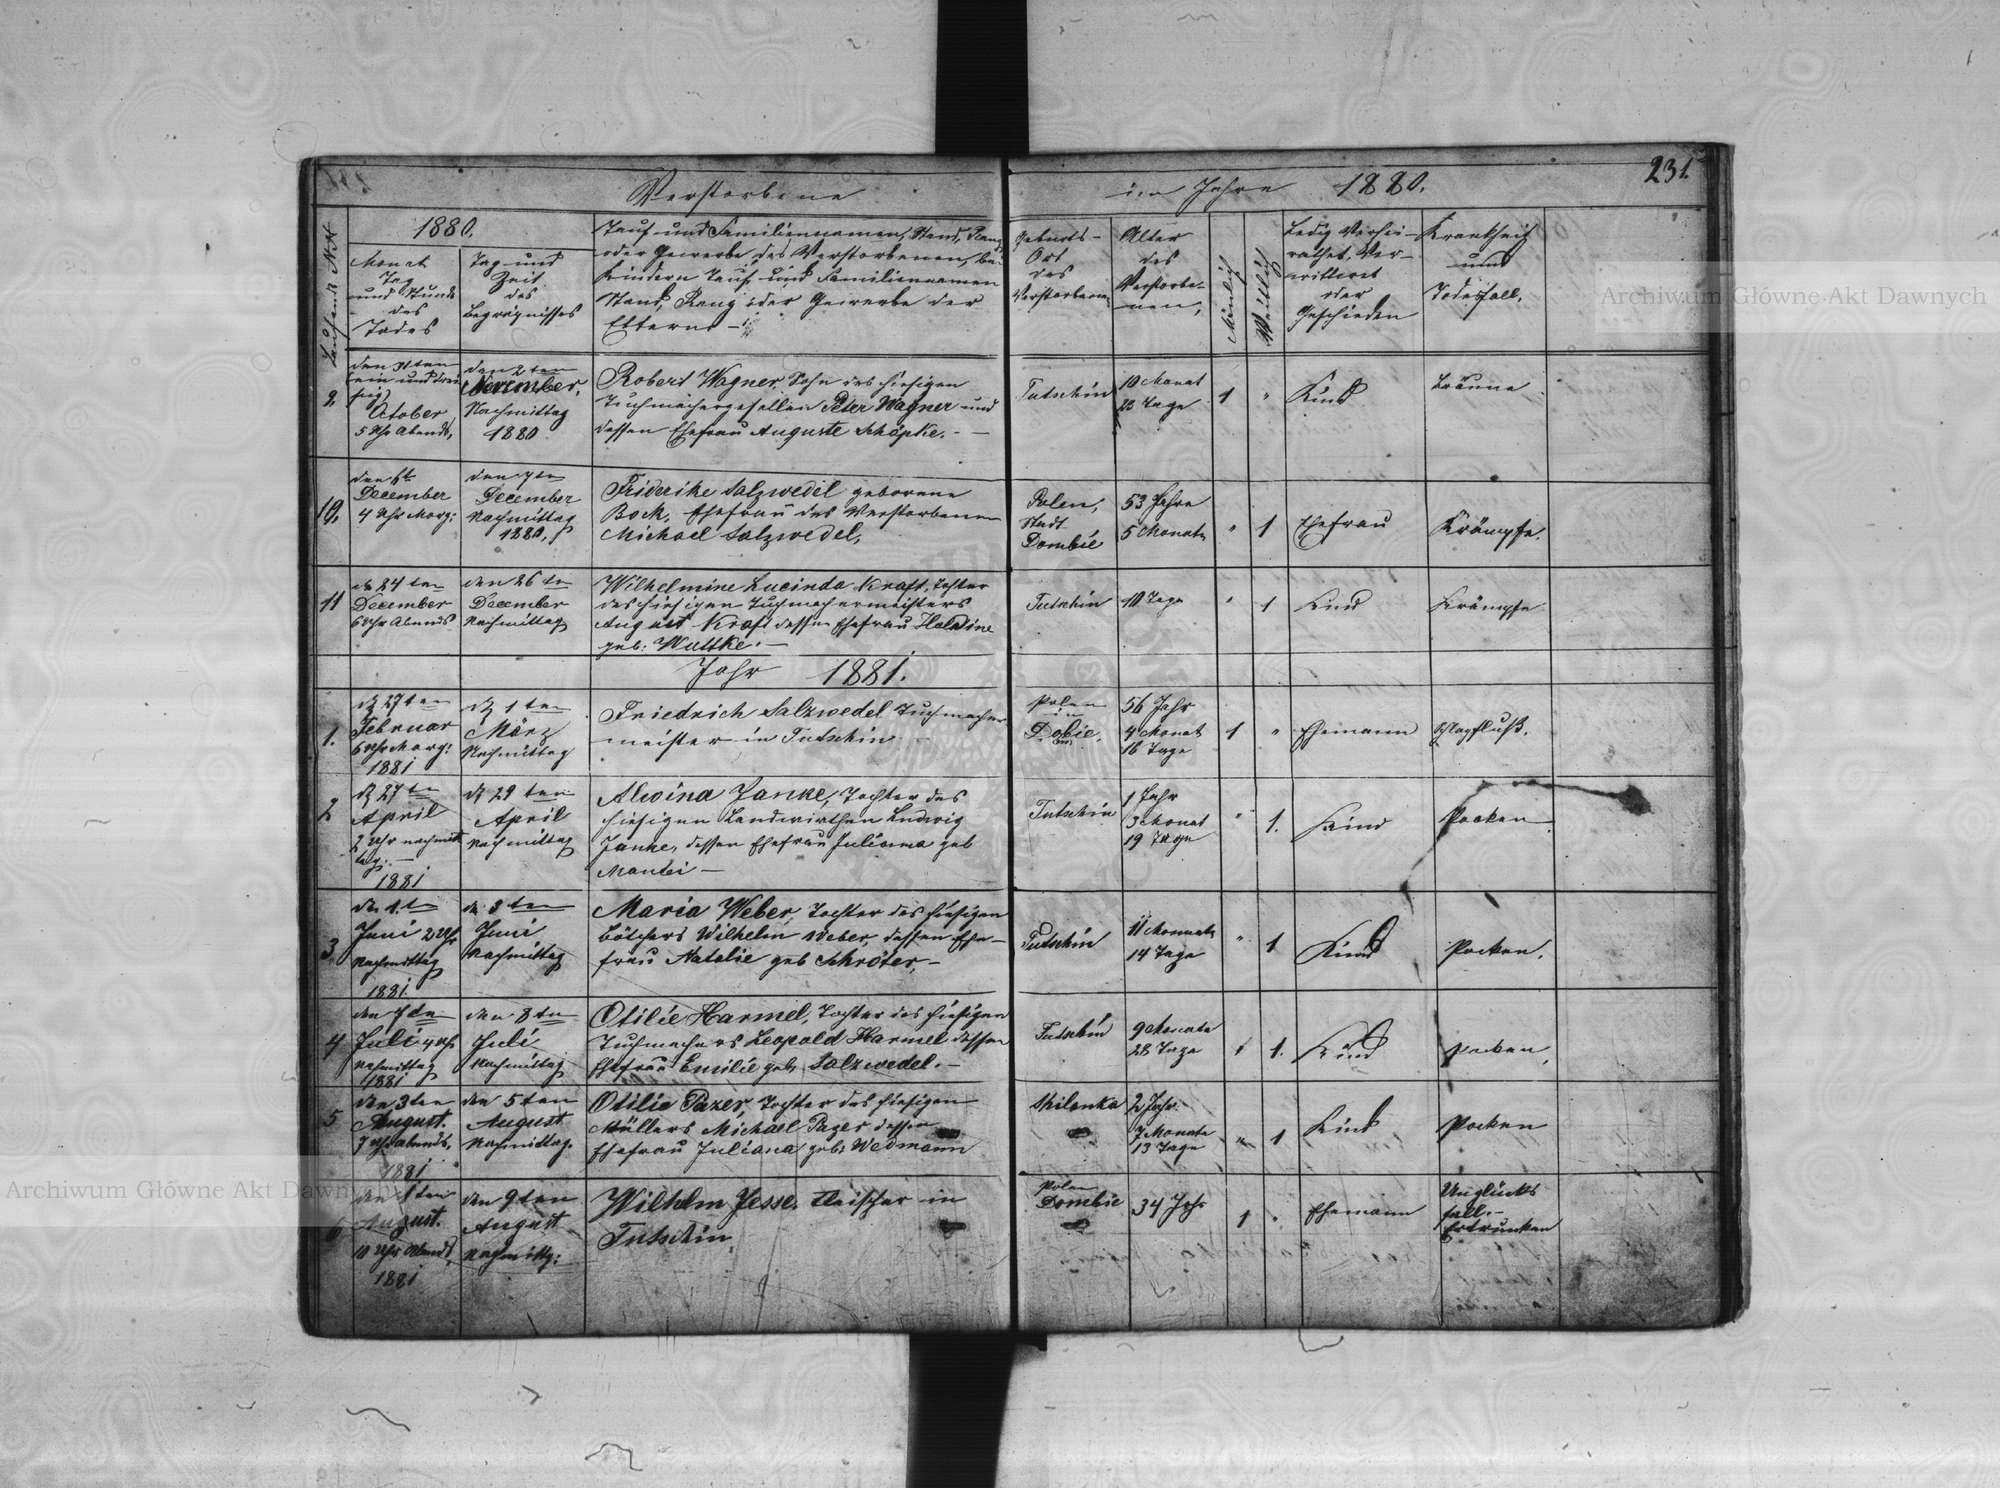 231.
Verstorbene im Jahre 1880.
Laufende №
1880.
Monat
Tag
und Stunde
des
Todes
Tag und
Zeit
des
Begräbnisses
Tauf und Familiennamen, Stand, Rang
oder Gewerbe des Verstorbenen, bei
Kindern Tauf und Familiennamen
Stand, Rang oder Gewerbe der
Eltern
Geburts-
Ort
des
Verstorbenen
Alter
des
Verstorbe-
nen,
Männlich
Weiblich
Ledig Verhei-
rathet, Ver-
wittwet
oder
Geschieden
Krankheit
und
Todesfall.
9.
den 31ten
October
5 Uhr Abends,
den 2ten
November,
Nachmittag
1880
Robert Wagner Sohn des hiesigen
Tuchmachergesellen Peter Wagner und
dessen Ehefrau Auguste Schöpke.
Tutschin
10 Monat
23 Tage
1
"
Kind
Bräune
10.
den 6ten
December
4 Uhr Morg:
den 7ten
December
Nachmittag
1880,
Friderike Salzwedel geborene
Bock, Ehefrau des Verstorbenen
Michael Salzwedel,
Polen,
Stadt
Dombie
53 Jahre
5 Monate
"
1
Ehefrau
Krämpfe.
11
den 24ten
December
6 Uhr Abends
den 26ten
December
Nachmittag
Wilhelmine Lucinda Kraft, Tochter
des hiesigen Tuchmachermeisters
August Kraft dessen Ehefrau
geb: Wuttke.
Tutschin
10 Tage
"
1
Kind
Krämpfe
Jahr 1881.
1.
27ten
Februar
6 Uhr Morg:
1881
1ten
März
Nachmittag
Friedrich Salzwedel Tuchmacher
meister in Tutschin
Polen
in
Dobie.
56 Jahr
4 Monat
16 Tage
1
"
Ehemann
Schlagfluß.
2
27ten
April
2 Uhr nachmit
tag.
1881
29ten
April
Nachmittag
Alwina Janke, Tochter des
hiesigen Landwirthen Ludwig
Janke, dessen Ehefrau Juliana geb
Mantei
Tutschin
1 Jahr
3 Monat
19 Tage
"
1.
Kind
Pocken.
3.
den 1ten
Juni 2 Uhr
Nachmittag
1881
den 3ten
Juni
Nachmittag
Maria Weber, Tochter des hiesigen
Bötchers Wilhelm Weber, dessen Ehe-
frau Natalie geb Schröter,
Tutschin
11 Monate
14 Tage
"
1
Kind
Pocken.
4
den 7ten
Juli 4 Uhr
Nachmittag
1881
den 8ten
Juli
Nachmittag
Otilie Harmel, Tochter des hiesigen
Tuchmachers Leopold Harmel dessen
Ehefrau Emilie geb. Salzwedel.
Tutschin
9 Monate
28 Tage
1.
Kind
Pocken,
5
den 3ten
August.
7 Uhr abends,
1881
den 5ten
August
Nachmittag.
Otilie Pazer, Tochter des hiesigen
Müllers Michael Pazer dessen
Ehefrau Juliana geb. Wedmann
2 Jahr
7 Monate
13 Tage
"
1
Kind
Pocken
6
den 1ten
August.
10 Uhr Abends,
1881
den 9ten
August
Nachmittg:
Wilhelm Jesse, Fleischer in
Tutschin,
Polen
Dombie
34 Jahr
1
"
Ehemann
Unglücks
fall.
Ertrunken
Archiwum Główne Akt Dawnych
Archiwum Główne Akt Dawnych